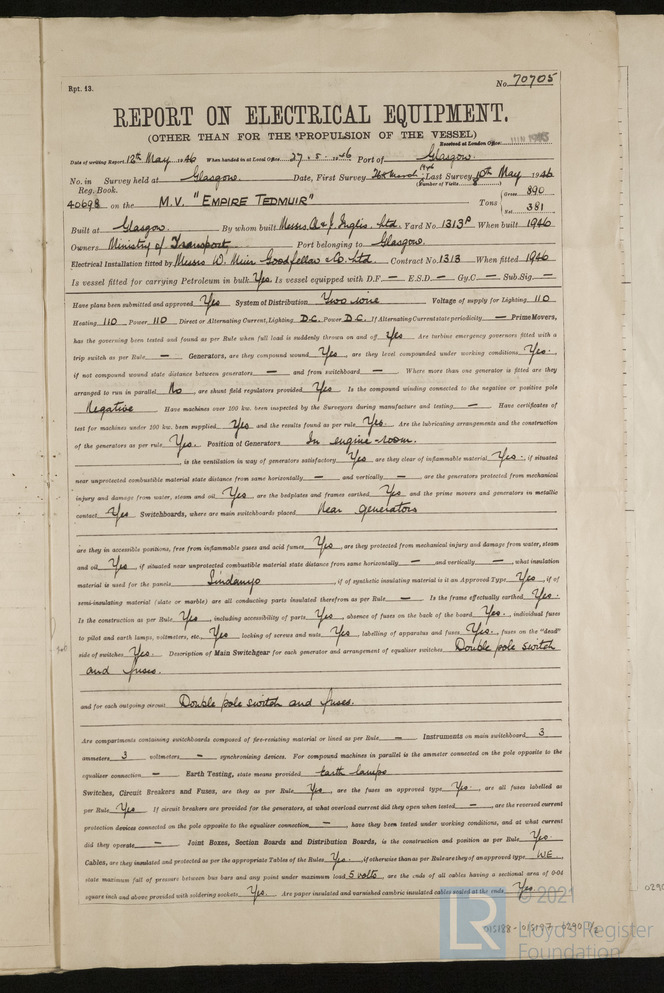 Rpt. 13.
No. 70705
REPORT ON ELECTRICAL EQUIPMENT.
(OTHER THAN FOR THE PROPULSION OF THE VESSEL)
Received at London Office
Date of writing Report 12th May 1946 When handed in at Local Office 27.5.1946 Port of Glasgow.
No. in Survey held at Glasgow. Date, First Survey Last Survey May 1946
Reg. Book. (Number of Visits
40698 on the M.V. "EMPIRE TEDMUIR" Tons Gross 890 Net 381
Built at Glasgow. By whom built Messrs A. & J. Inglis. Ltd. Yard No. 1313P When built 1946
Owners Ministry of Transport. Port belonging to Glasgow.
Electrical Installation fitted by Messrs W. Muir Goodfellow & Co. Ltd. Contract No. 1313 When fitted 1946
Is vessel fitted for carrying Petroleum in bulk Yes. Is vessel equipped with D.F. — E.S.D. — Gy.C. — Sub.Sig. —
Have plans been submitted and approved Yes System of Distribution Two wire Voltage of supply for Lighting 110
Heating 110 Power 110 Direct or Alternating Current, Lighting D.C. Power D.C. If Alternating Current state periodicity — Prime Movers,
has the governing been tested and found as per Rule when full load is suddenly thrown on and off Yes Are turbine emergency governors fitted with a
trip switch as per Rule — Generators, are they compound wound Yes, are they level compounded under working conditions Yes.
if not compound wound state distance between generators — and from switchboard — Where more than one generator is fitted are they
arranged to run in parallel No, are shunt field regulators provided Yes Is the compound winding connected to the negative or positive pole
Negative Have machines over 100 kw. been inspected by the Surveyors during manufacture and testing — Have certificates of
test for machines under 100 kw. been supplied Yes and the results found as per rule Yes. Are the lubricating arrangements and the construction
of the generators as per rule Yes. Position of Generators In engine-room.
, is the ventilation in way of generators satisfactory Yes are they clear of inflammable material Yes. if situated
near unprotected combustible material state distance from same horizontally — and vertically — are the generators protected from mechanical
injury and damage from water, steam and oil Yes, are the bedplates and frames earthed Yes and the prime movers and generators in metallic
contact Yes Switchboards, where are main switchboards placed Near generators
are they in accessible positions, free from inflammable gases and acid fumes Yes, are they protected from mechanical injury and damage from water, steam
and oil Yes, if situated near unprotected combustible material state distance from same horizontally — and vertically —, what insulation
material is used for the panels Sindanyo, if of synthetic insulating material is it an Approved Type Yes, if of
semi-insulating material (slate or marble) are all conducting parts insulated therefrom as per Rule — Is the frame effectually earthed Yes.
Is the construction as per Rule Yes, including accessibility of parts Yes, absence of fuses on the back of the board Yes., individual fuses
to pilot and earth lamps, voltmeters, etc. Yes locking of screws and nuts Yes, labelling of apparatus and fuses Yes., fuses on the "dead"
side of switches Yes. Description of Main Switchgear for each generator and arrangement of equaliser switches Double pole switch
and fuses.
and for each outgoing circuit Double pole switch and fuses.
Are compartments containing switchboards composed of fire-resisting material or lined as per Rule — Instruments on main switchboard 3
ammeters 3 voltmeters — synchronising devices. For compound machines in parallel is the ammeter connected on the pole opposite to the
equaliser connection — Earth Testing, state means provided Earth lamps
Switches, Circuit Breakers and Fuses, are they as per Rule Yes, are the fuses an approved type Yes., are all fuses labelled as
per Rule Yes If circuit breakers are provided for the generators, at what overload current did they open when tested —, are the reversed current
protection devices connected on the pole opposite to the equaliser connection —, have they been tested under working conditions, and at what current
did they operate — Joint Boxes, Section Boards and Distribution Boards, is the construction and position as per Rule Yes.
Cables, are they insulated and protected as per the appropriate Tables of the Rules Yes., if otherwise than as per Rule are they of an approved type WE
state maximum fall of pressure between bus bars and any point under maximum load 5 volts, are the ends of all cables having a sectional area of 0·04
square inch and above provided with soldering sockets Yes. Are paper insulated and varnished cambric insulated cables sealed at the ends Yes
© 2021
LR Lloyd's Register
Foundation
015188-015197-0290 1/2